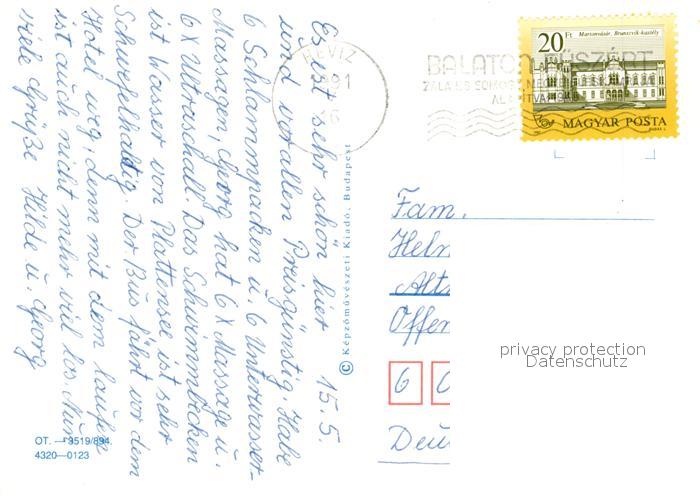 15.5.
Es ist sehr schön hier
und vor allen Preisgünstig. Habe
6 Schlammpacken u. 6 Unterwasser-
Massagen, Georg hat 6x Massage u.
6x Ultraschall. Das Schwimmbecken
ist Wasser von Plattensee ist sehr
Schwefelhaltig. Der Bus fährt vor dem
Hotel weg, denn mit dem laufen
ist auch nicht mehr viel los. Nun
viele Grüße Hilde u. Georg
OT. — 3519/894.
4320—0123
© Képzőművészeti Kiadó, Budapest
HÉVIZ
BALATON FÜSZÉRT
ZALA ÉS SOMOGY
20 Ft
Martonvásár, Brunszvik-kastély
MAGYAR POSTA
Fam.
Heln
Alts
Offen
6
Deu
privacy protection
Datenschutz